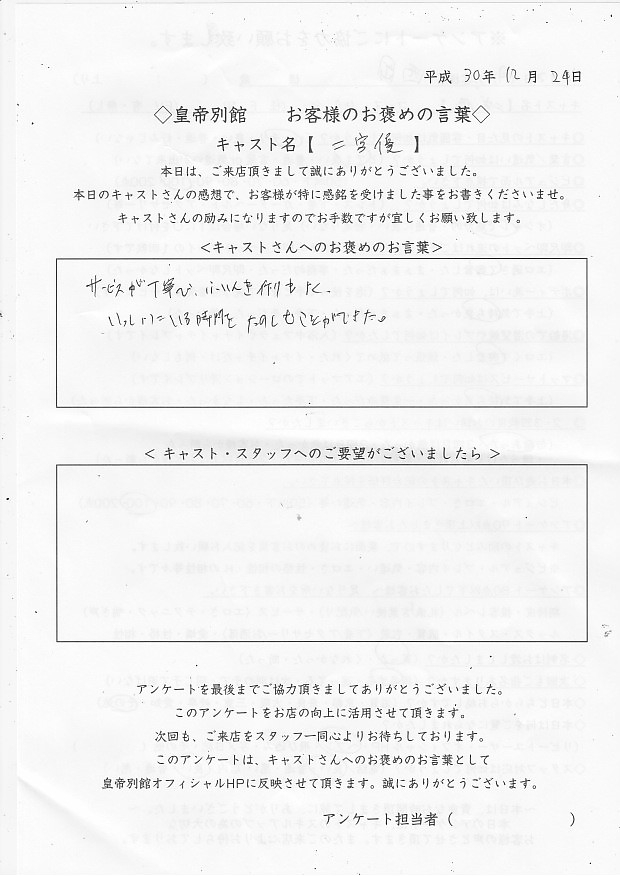 平成 30年 12月 24日
◇皇帝別館 お客様のお褒めの言葉◇
キャスト名【 二宮優 】
本日は、ご来店頂きまして誠にありがとうございました。
本日のキャストさんの感想で、お客様が特に感銘を受けました事をお書きくださいませ。
キャストさんの励みになりますのでお手数ですが宜しくお願い致します。
<キャストさんへのお褒めのお言葉>
サービスが丁寧で、ふいんき作りもよく、
いっしょにいる時間をたのしむことができました。
< キャスト・スタッフへのご要望がございましたら >
アンケートを最後までご協力頂きましてありがとうございました。
このアンケートをお店の向上に活用させて頂きます。
次回も、ご来店をスタッフ一同心よりお待ちしております。
このアンケートは、キャストさんへのお褒めのお言葉として
皇帝別館オフィシャルHPに反映させて頂きます。誠にありがとうございます。
アンケート担当者（ ）